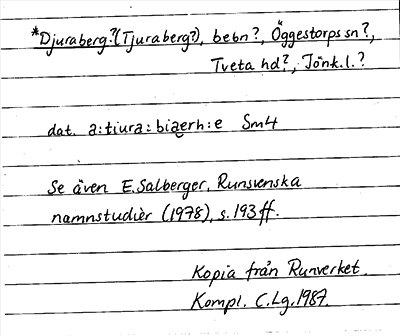 *Djuraberg?(Tjuraberg?), bebn?, Öggestorps sn?,
Tveta hd?, Jönk.l.?
dat. a:tiura:biaerh:e Sm4
Se även E.Salberger, Runsvenska
namnstudier (1978), s.193ff.
Kopia från Runverket.
Kompl. C.Lg.1987.